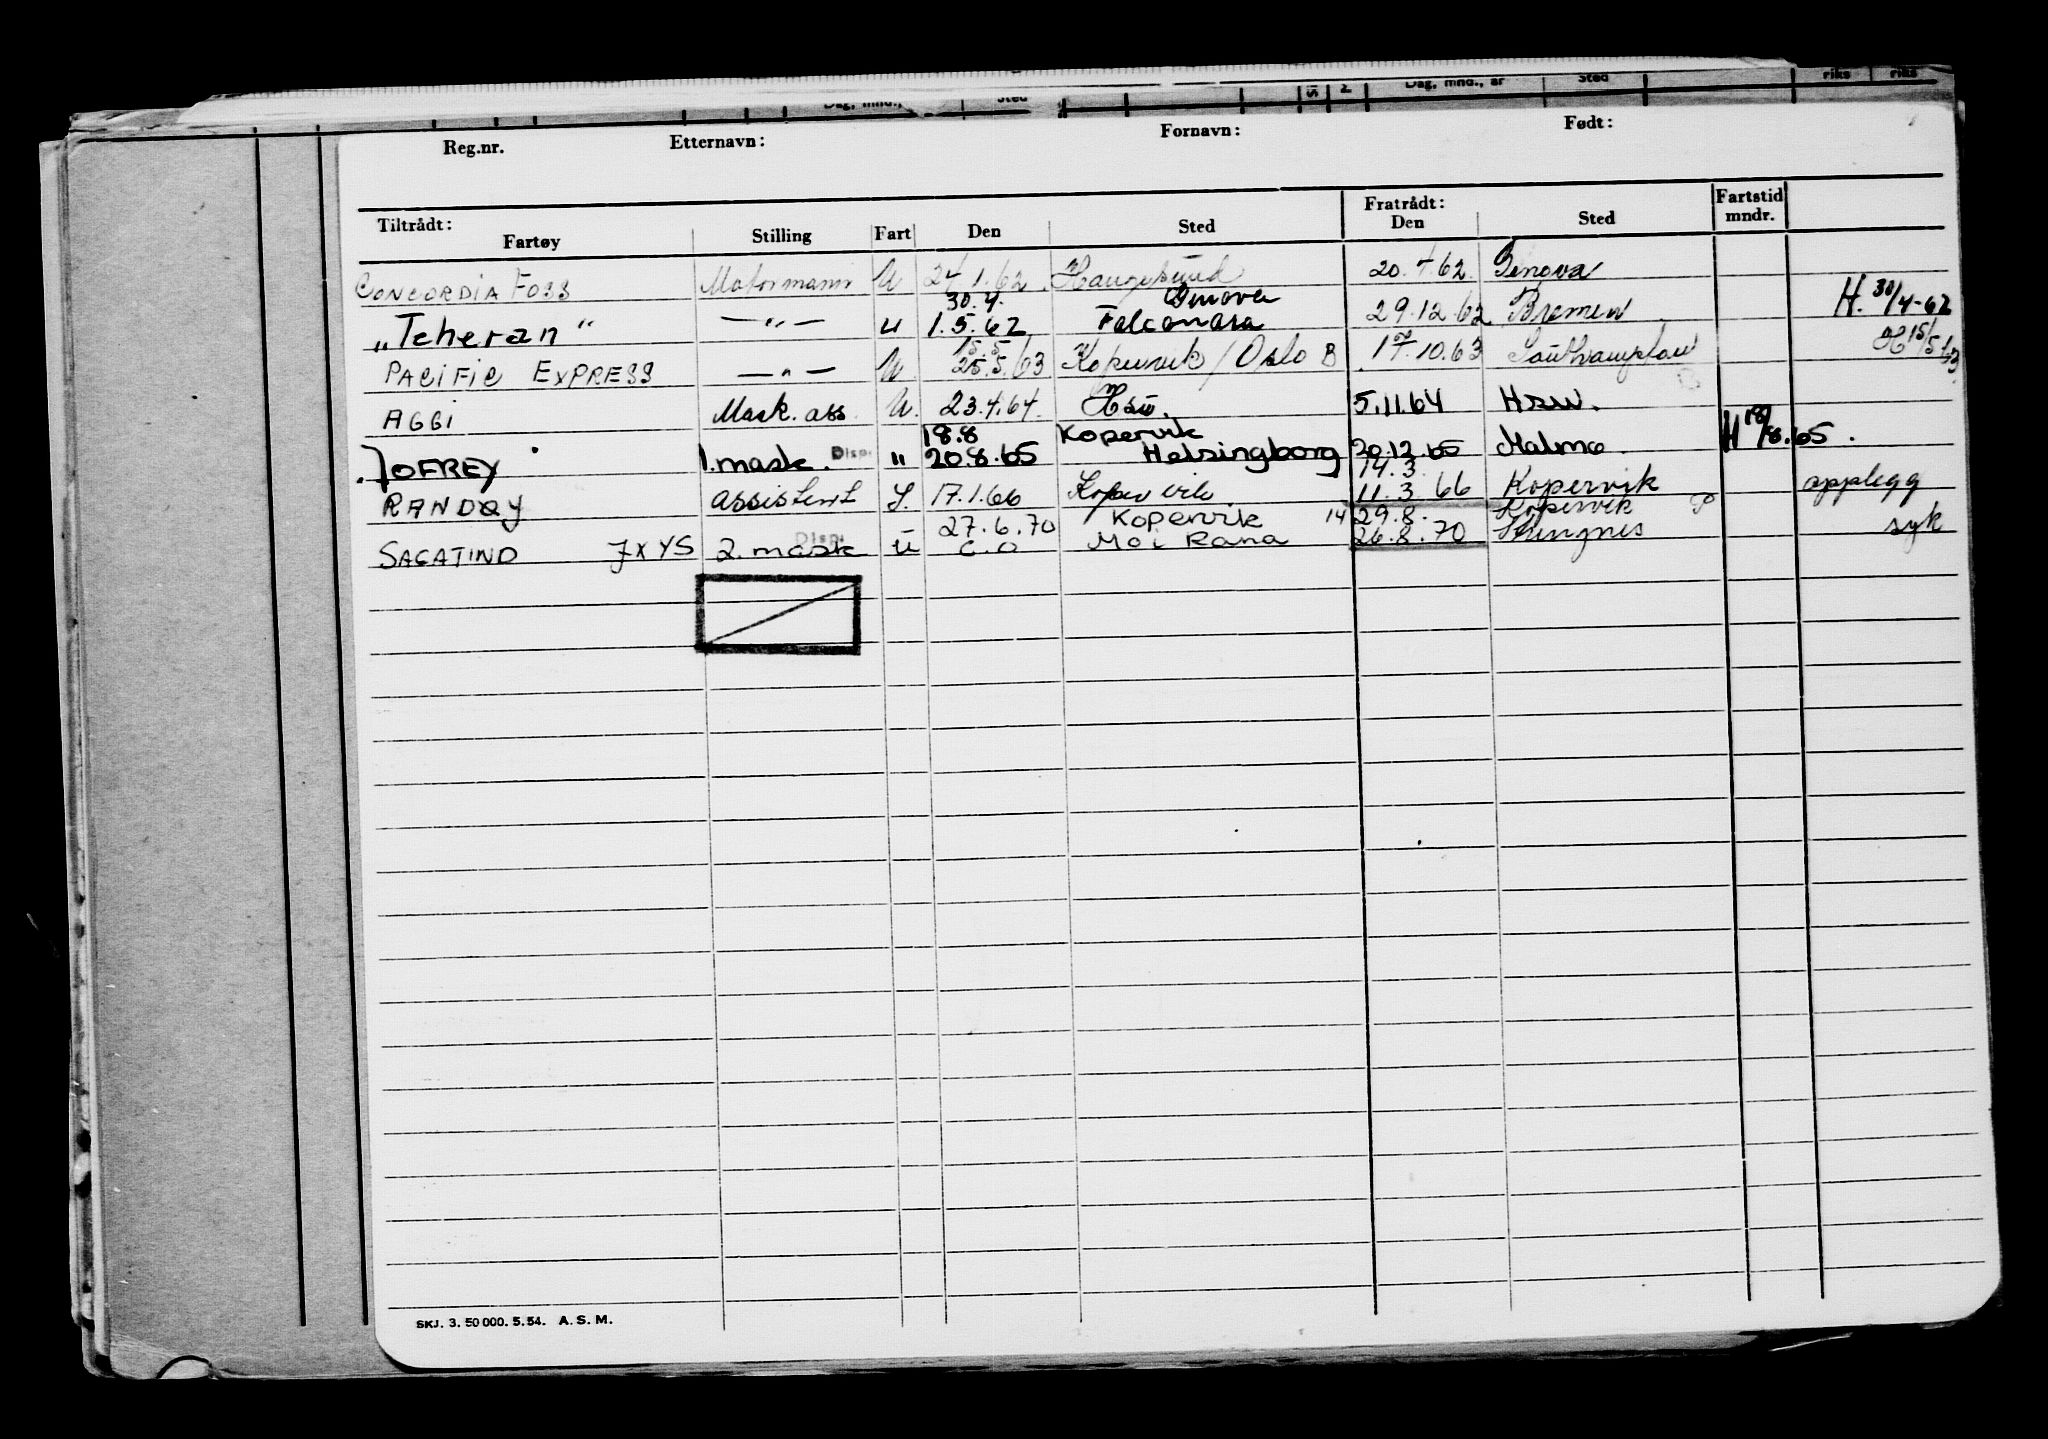 Dag, mnd., Sted Dag, mnd., år Sted riks riks
Reg.nr. Etternavn: Fornavn: Født:
Tiltrådt: Fratrådt: Fartstid
Fartøy Stilling Fart Den Sted Den Sted mndr.
CONCORDIA FOSS Motormann U 24.1.62 Haugesund 20.4.62 Genova
30.4. Genova
„Teheran" —„— u 1.5.62 Falconara 29.12.62 Bremen H. 30/4-62
15.5
PACIFIC EXPRESS —„— U 25.5.63 Kopervik / Oslo B 17.10.63 Southampton H 15/5 63
AGGI Mask. ass. U. 23.4.64. Hsw. 5.11.64 Hsw.
18.8 Kopervik
JOFREY 1. mask. Disp. " 20.8.65 Helsingborg 20.12.65 Malmø. H 18/8.65.
14.3
RANDØY assistent S. 17.1.66 Kopervik 11.3.66 Kopervik opplegg
27.6.70 Kopervik 14 29.8. Kopervik
SAGATIND JXYS 2. mask Disp. u Mo i Rana 26.8.70 syk
SKJ. 3. 50 000. 5. 54. A. S. M.